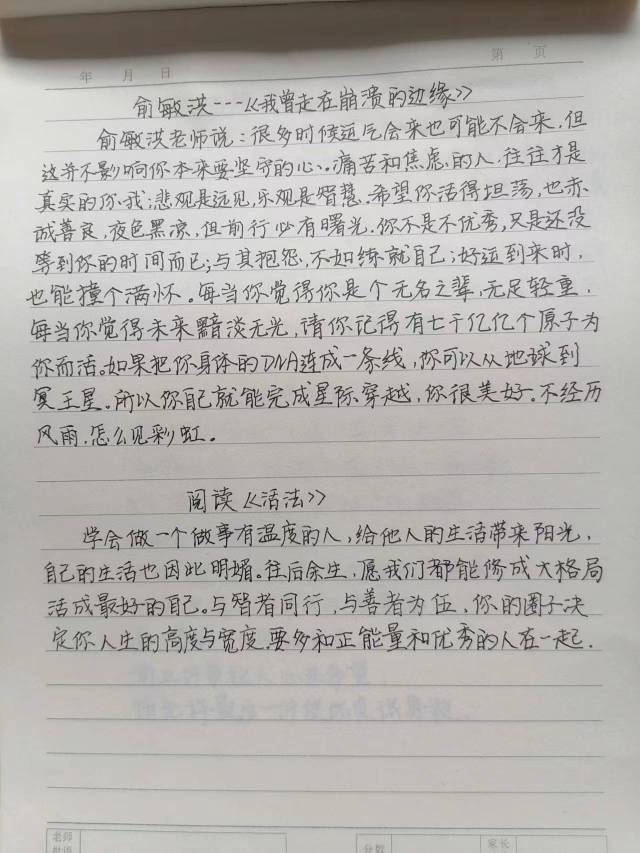 第 页
年 月 日
俞敏洪---《我曾走在崩溃的边缘》
俞敏洪老师说：很多时候运气会来也可能不会来，但
这并不影响你本来要坚守的心、痛苦和焦虑的人，往往才是
真实的你我；悲观是远见，乐观是智慧，希望你活得坦荡，也赤
诚善良，夜色黑凉，但前行必有曙光。你不是不优秀，只是还没
等到你的时间而已；与其抱怨，不如练就自己；好运到来时，
也能撞个满怀。每当你觉得你是个无名之辈，无足轻重，
每当你觉得未来黯淡无光，请你记得有七千亿亿个原子为
你而活。如果把你身体的DNA连成一条线，你可以从地球到
冥王星。所以你自己就能完成星际穿越，你很美好。不经历
风雨，怎么见彩虹。
阅读《活法》
学会做一个做事有温度的人，给他人的生活带来阳光，
自己的生活也因此明媚。往后余生，愿我们都能修成大格局
活成最好的自己。与智者同行，与善者为伍，你的圈子决
定你人生的高度与宽度。要多和正能量和优秀的人在一起.
老师
批语
分数
家长